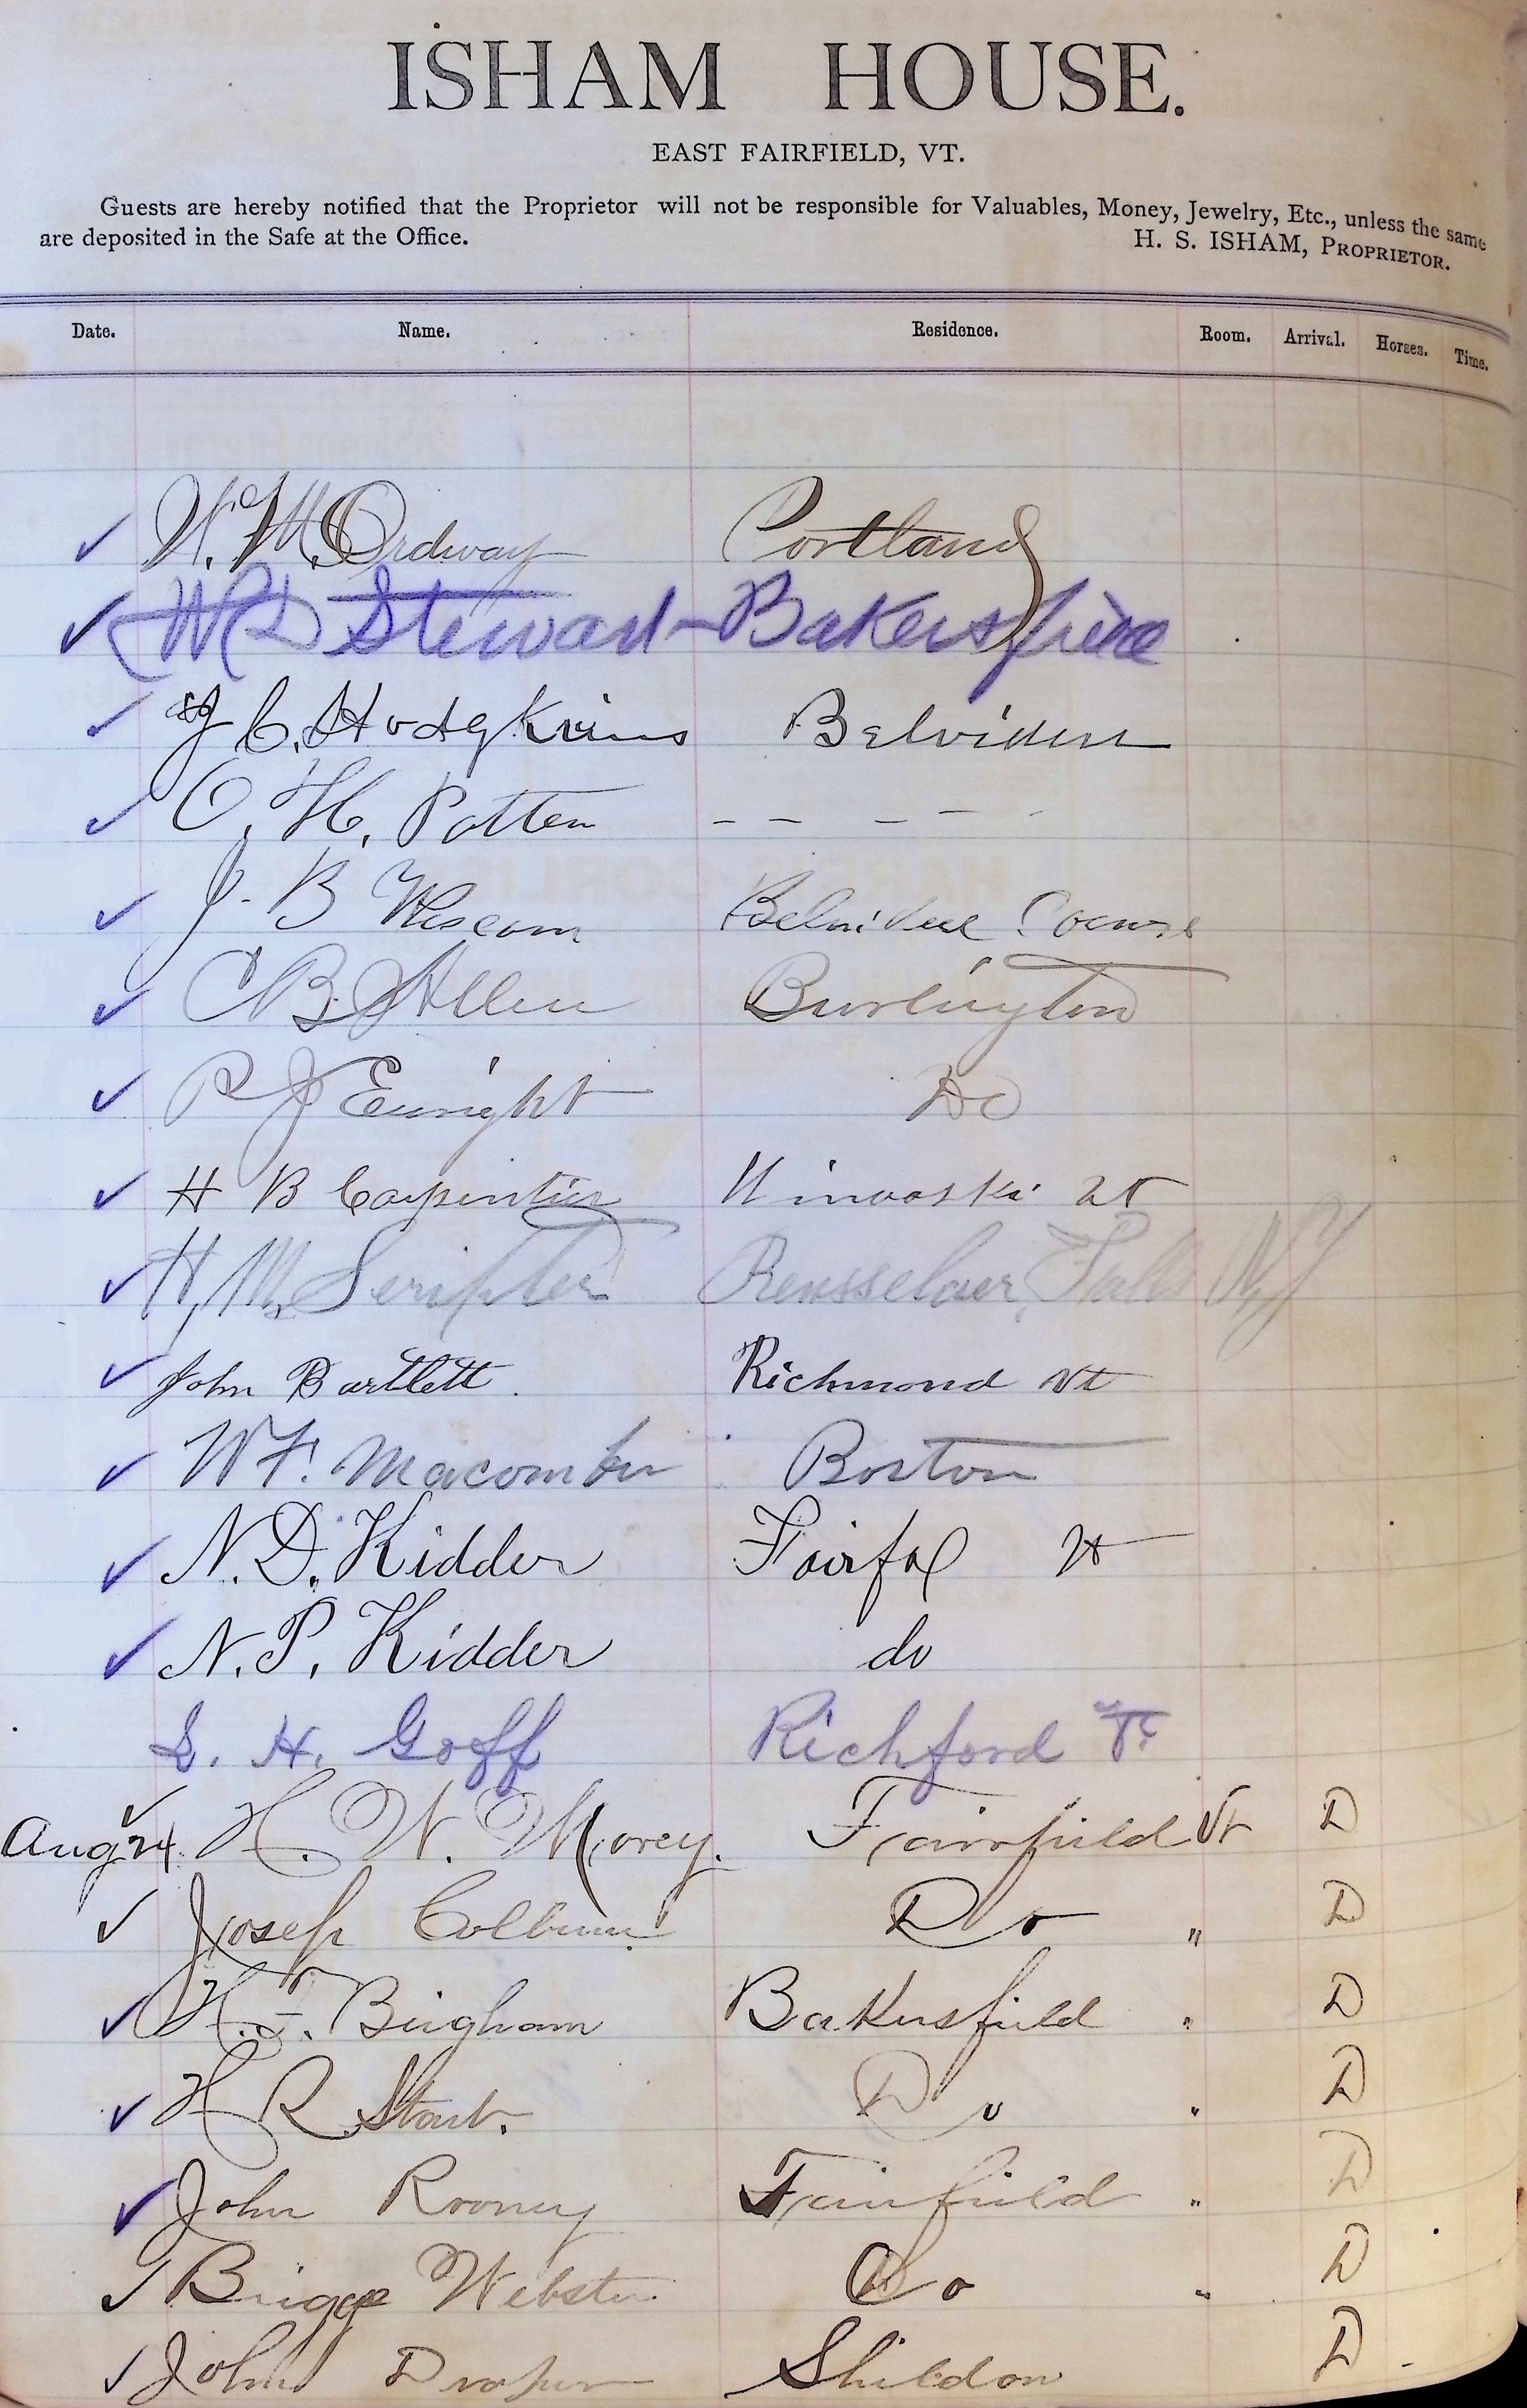 ISHAM HOUSE.
EAST FAIRFIELD, VT.
Guests are hereby notified that the Proprietor will not be responsible for Valuables, Money, Jewelry, Etc., unless the same
are deposited in the Safe at the Office.
H. S. ISHAM, PROPRIETOR.
Date. Name. Residence. Room. Arrival. Horses. Time.
W. M. Ordway Portland
W D Stewart - Bakersfield
J C. Hodgkins Belvidere
O. H. Potter - - - - -
J. B Wescom Belvidere
C B. Allen Burlington
P J Enright Do
H B Carpenter Winooski Vt
H. M. Scripter Rensselaer Falls N.Y
John Bartlett. Richmond Vt
W F. Macomber Boston
N. D. Kidder Fairfax Vt
N. P. Kidder do
L. H. Goff Richford Vt
Aug 24. H. W. Morey. Fairfield Vt D
Joseph Colburn Do " D
H. F. Bingham Bakersfield " D
H R Start. Do " D
John Rooney Fairfield " D
Briggs Webster Do " D
John Draper Sheldon D